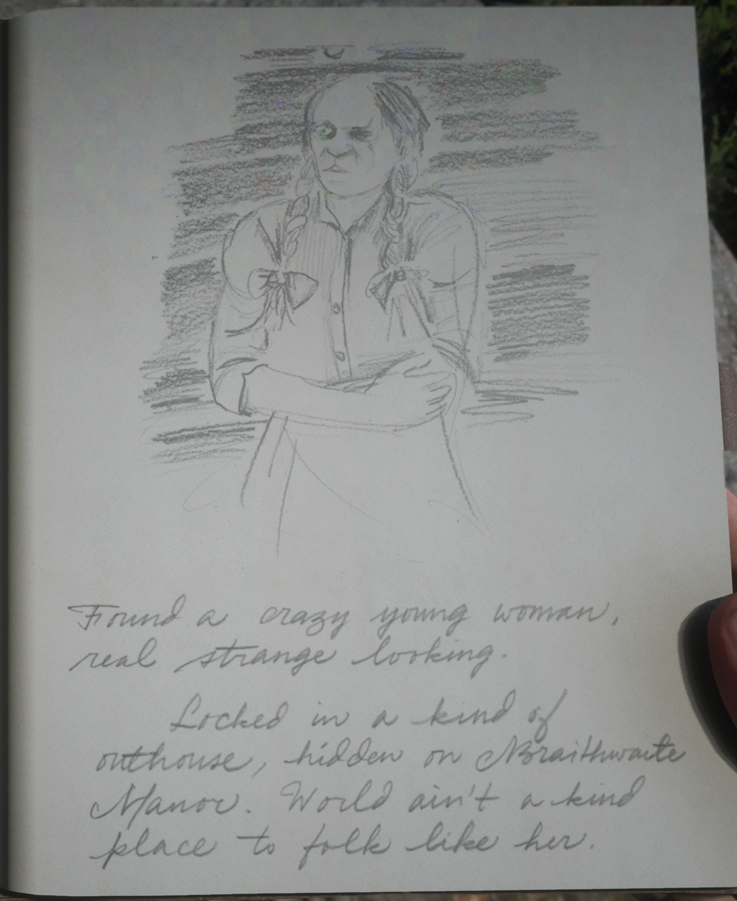 Found a crazy young woman,
real strange looking.
Locked in a kind of
outhouse, hidden on Braithwaite
Manor. World ain't a kind
place to folk like her.